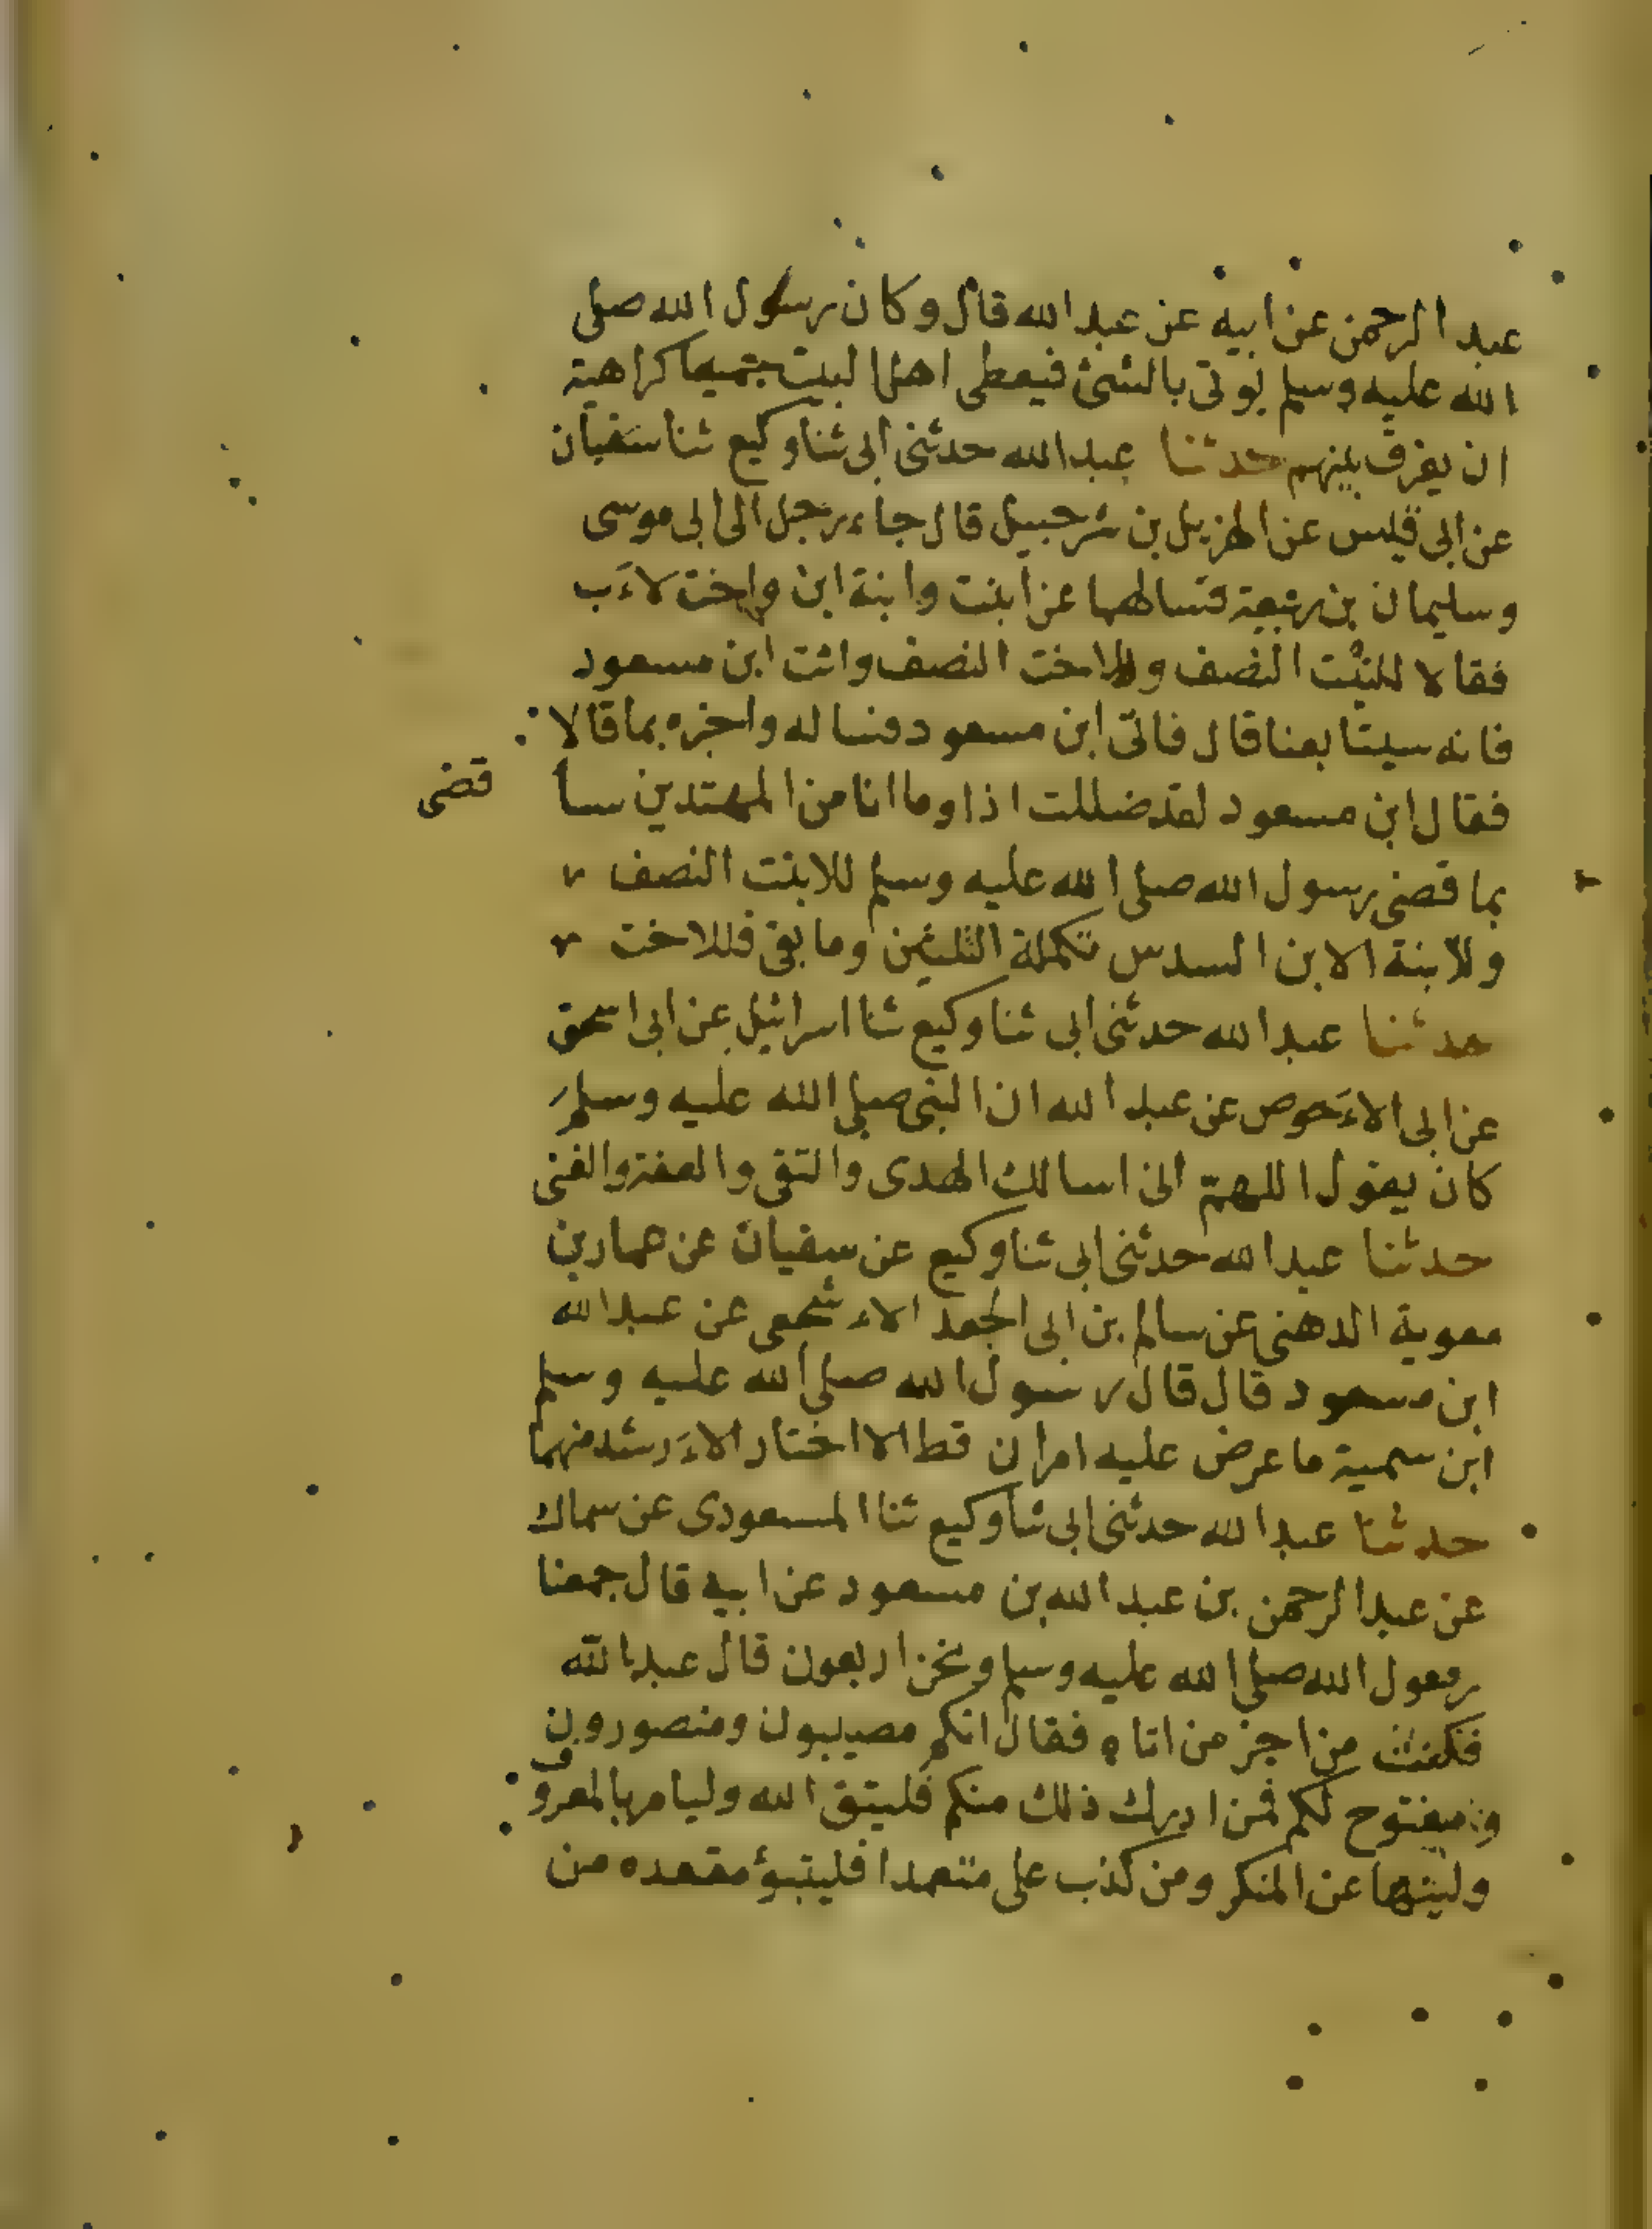 عبد الرحمن عن ابيه عن عبد الله قال وكان رسول الله صلى
الله عليه وسلم يوتى بالشئ فيعطى اهل البيت جميعا كراهية
ان يفرق بينهم حدثنا عبد الله حدثنى ابى ثنا وكيع ثنا سفيان
عن ابى قيس عن الهزيل بن شرحبيل قال جاء رجل الى ابى موسى
وسليمان بن ربيعة فسالهما عن ابنت وابنة ابن واخت لاءب
فقالا للبنت النصف وللاخت النصف وائت ابن مسعود
فانه سيتابعنا قال فاتى ابن مسعود فساله واخبره بما قالا
فقال ابن مسعود لقد ضللت اذا وما انا من المهتدين سا قضى
بما قضى رسول الله صلى الله عليه وسلم للابنت النصف
وللابنة الابن السدس تكملة الثلثين وما بقى فللاخت
حدثنا عبد الله حدثنى ابى ثنا وكيع ثنا اسرائيل عن ابى اسحق
عن ابى الاءحوص عن عبد الله ان النبى صلى الله عليه وسلم
كان يقول اللهمّ انى اسالك الهدى والتقى والعفة والغنى
حدثنا عبد الله حدثنى ابى ثنا وكيع عن سفيان عن عمار بن
معوية الدهنى عن سالم بن ابى الجعد الاءشجعى عن عبد الله
ابن مسعود قال قال رسول الله صلى الله عليه وسلم
ابن سمية ما عرض عليه امران قط الا اختار الاءرشد منهما
حدثنا عبد الله حدثنى ابى ثنا وكيع ثنا المسعودى عن سماك
عن عبد الرحمن بن عبد الله بن مسعود عن ابيه قال جمعنا
رسول الله صلى الله عليه وسلم ونحن اربعون قال عبد الله
فكنت من اخر من اتاه فقال انكم مصيبون ومنصورون
ومفتوح لكم فمن ادرك ذلك منكم فليتق الله وليامر بالمعروف
ولينها عن المنكر ومن كذب على متعمدا فليتبؤ مقعده من